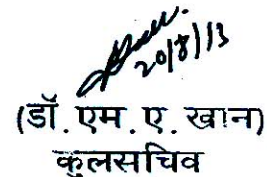 20/8/13
(डॉ. एम. ए. खान)
कुलसचिव